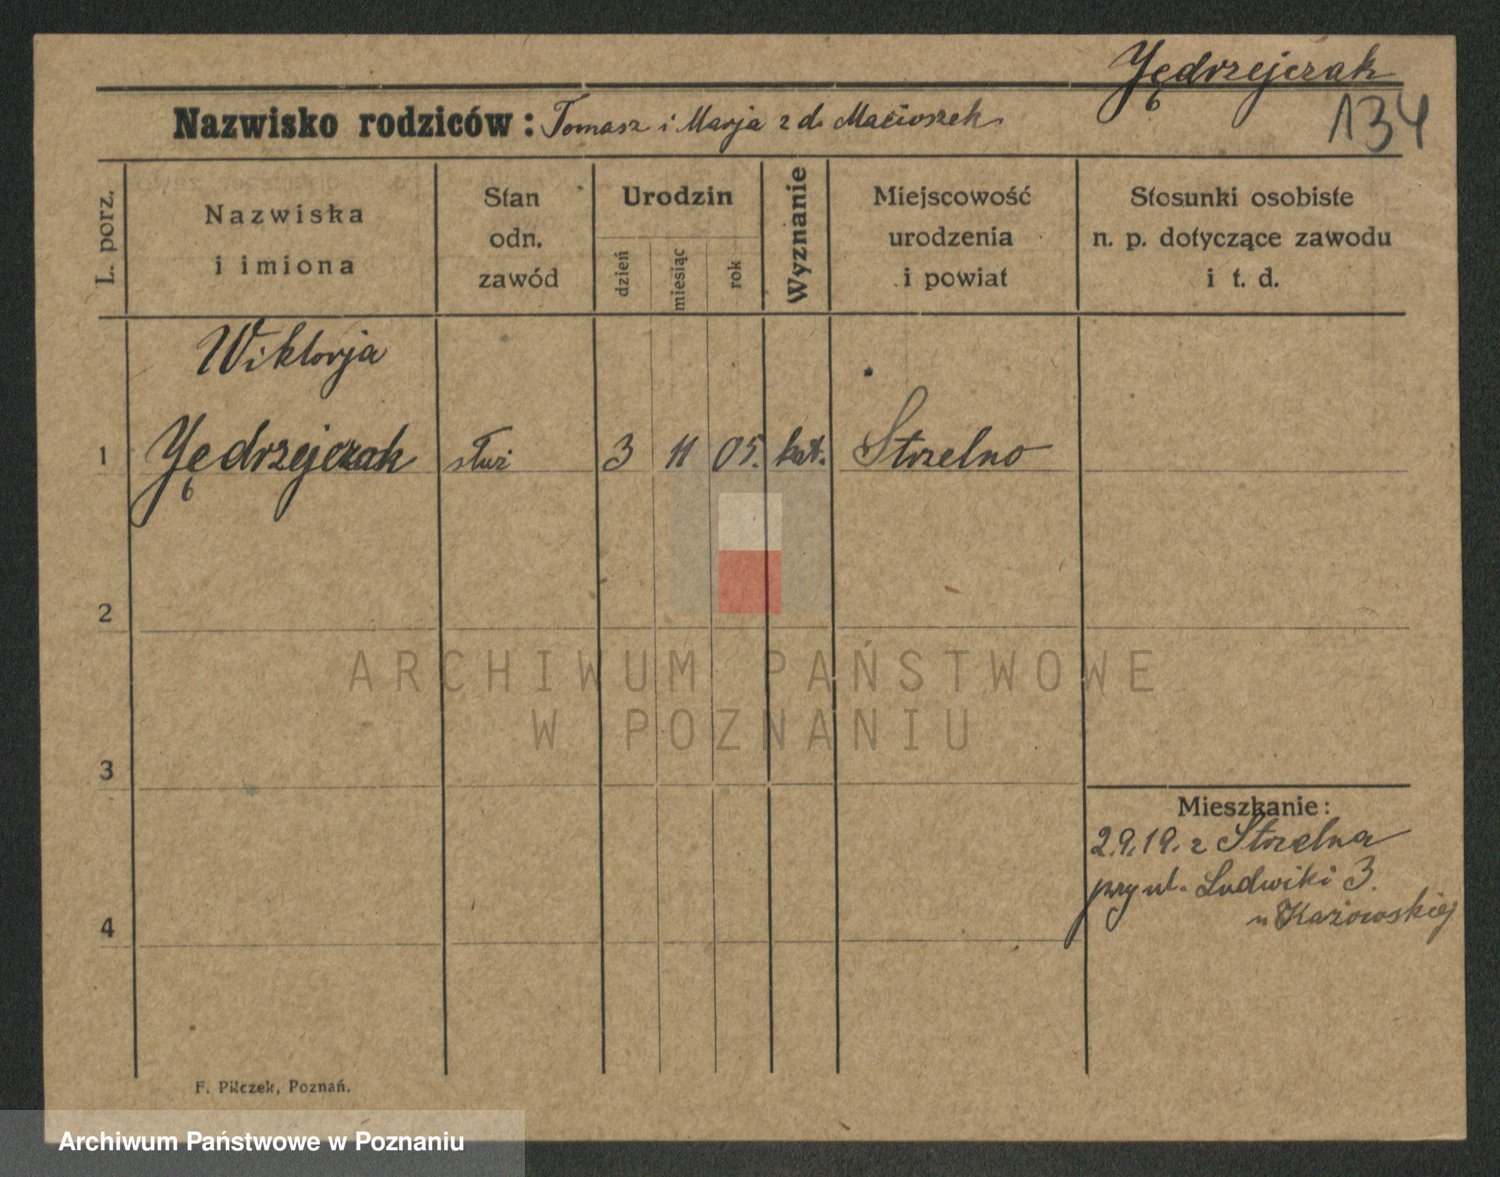 Jędrzejczak
134
Nazwisko rodziców: Tomasz i Marja z d. Macioszek
L. porz.
Nazwiska
i imiona
Stan
odn.
zawód
Urodzin
dzień
miesiąc
rok
Wyznanie
Miejscowość
urodzenia
i powiat
Stosunki osobiste
n. p. dotyczące zawodu
i t. d.
Wiktorja
1 Jędrzejczak służ 3 11 05. kat. Strzelno
2
ARCHIWUM PAŃSTWOWE
W POZNANIU
3
Mieszkanie:
2.9.19. z Strzelna
przy ul. Ludwiki 3.
u Każowskiej
4
F. Pilczek, Poznań.
Archiwum Państwowe w Poznaniu